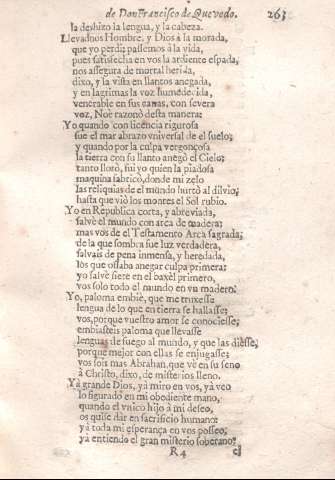 de Don Francisco de Quevedo. 263
la deshizo la lengua, y la cabeza.
Llevadnos Hombre, y Dios à la morada,
que yo perdi; passemos à la vida,
pues satisfecha en vos la ardiente espada,
nos assegura de mortal herida,
dixo, y la vista en llantos anegada,
y en lagrimas la voz humedecida,
venerable en sus canas, con severa
voz, Noè razonò desta manera:
Yo quando con licencia rigurosa
fue el mar abrazo vniversal de el suelo;
y quando por la culpa vergonçosa
la tierra con su llanto anegò el Cielo;
tanto llorò, fui yo quien la piadosa
maquina fabricò, donde mi zelo
las reliquias de el mundo hurtò al dilvio;
hasta que viò los montes el Sol rubio.
Yo en Republica corta, y abreviada,
salvè el mundo con arca de madera;
mas vos de el Testamento Arca sagrada;
de la que sombra fue luz verdadera,
salvais de pena inmensa, y heredada,
los que ossaba anegar culpa primera:
yo salvè siete en el baxèl primero,
vos solo todo el mundo en vn madero.
Yo, paloma embiè, que me truxesse
lengua de lo que en tierra se hallasse;
vos, porque vuestro amor se conociesse;
embiasteis paloma que llevasse
lenguas de fuego al mundo, y que las diesse,
porque mejor con ellas se enjugasse;
vos sois mas Abrahan, que vè en su seno
à Christo, dixo, de misterios lleno.
Yà grande Dios, yà miro en vos, yà veo
lo figurado en mi obediente mano,
quando el vnico hijo à mi deseo,
os quise dàr en sacrificio humano:
yà toda mi esperança en vos posseo;
yà entiendo el gran misterio soberano;
R 4 el